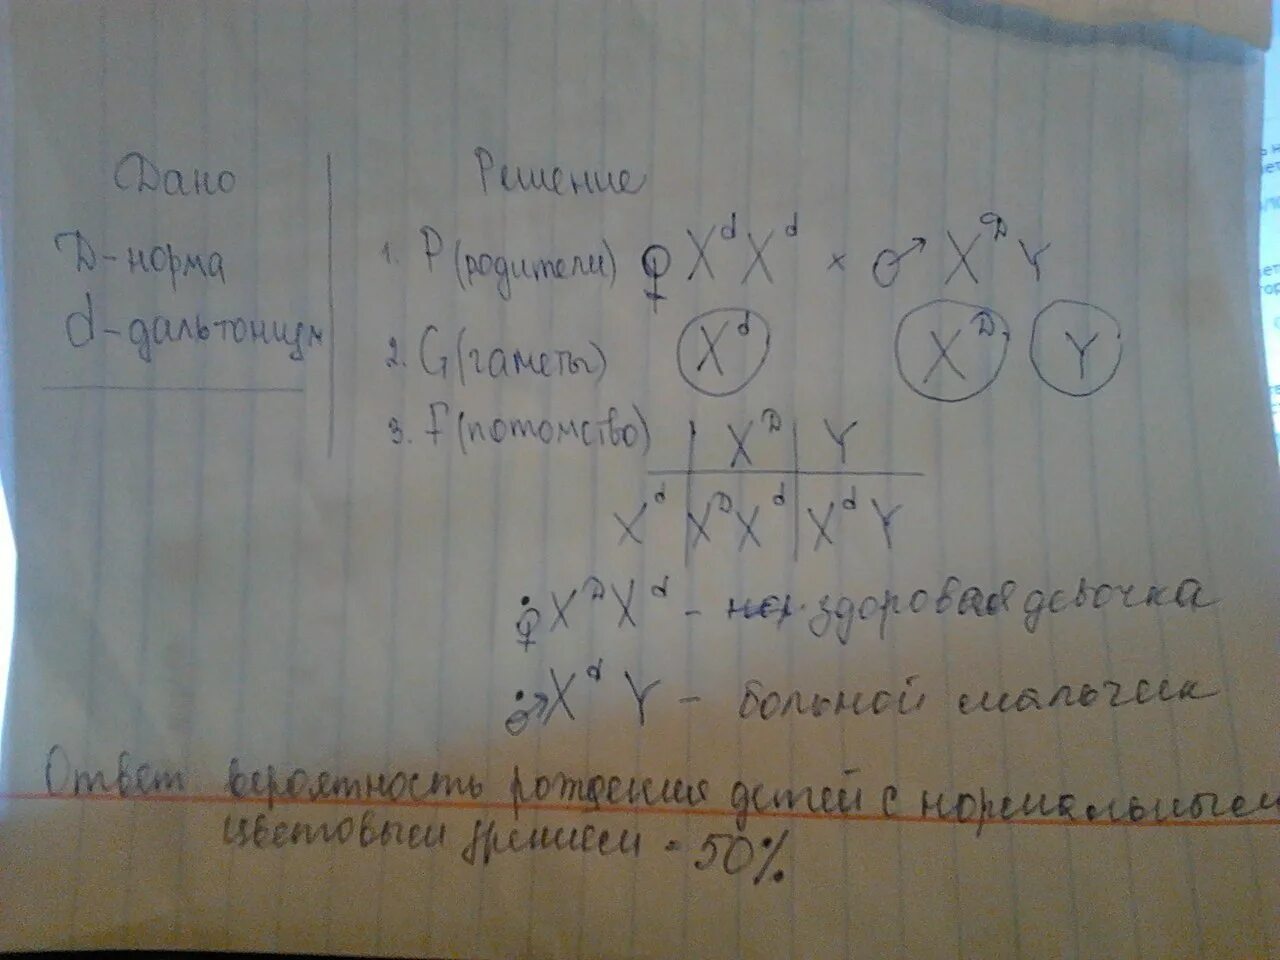 Дано
Решение
D - норма
d - дальтонизм
1. P (родители) ♀ X^d X^d × ♂ X^D Y
2. G (гаметы) X^d X^D Y
3. F (потомство) X^D Y
X^d X^D X^d X^d Y
♀ X^D X^d - здоровая девочка
♂ X^d Y - больной мальчик
Ответ вероятность рождения детей с нормальным
цветовым зрением - 50%